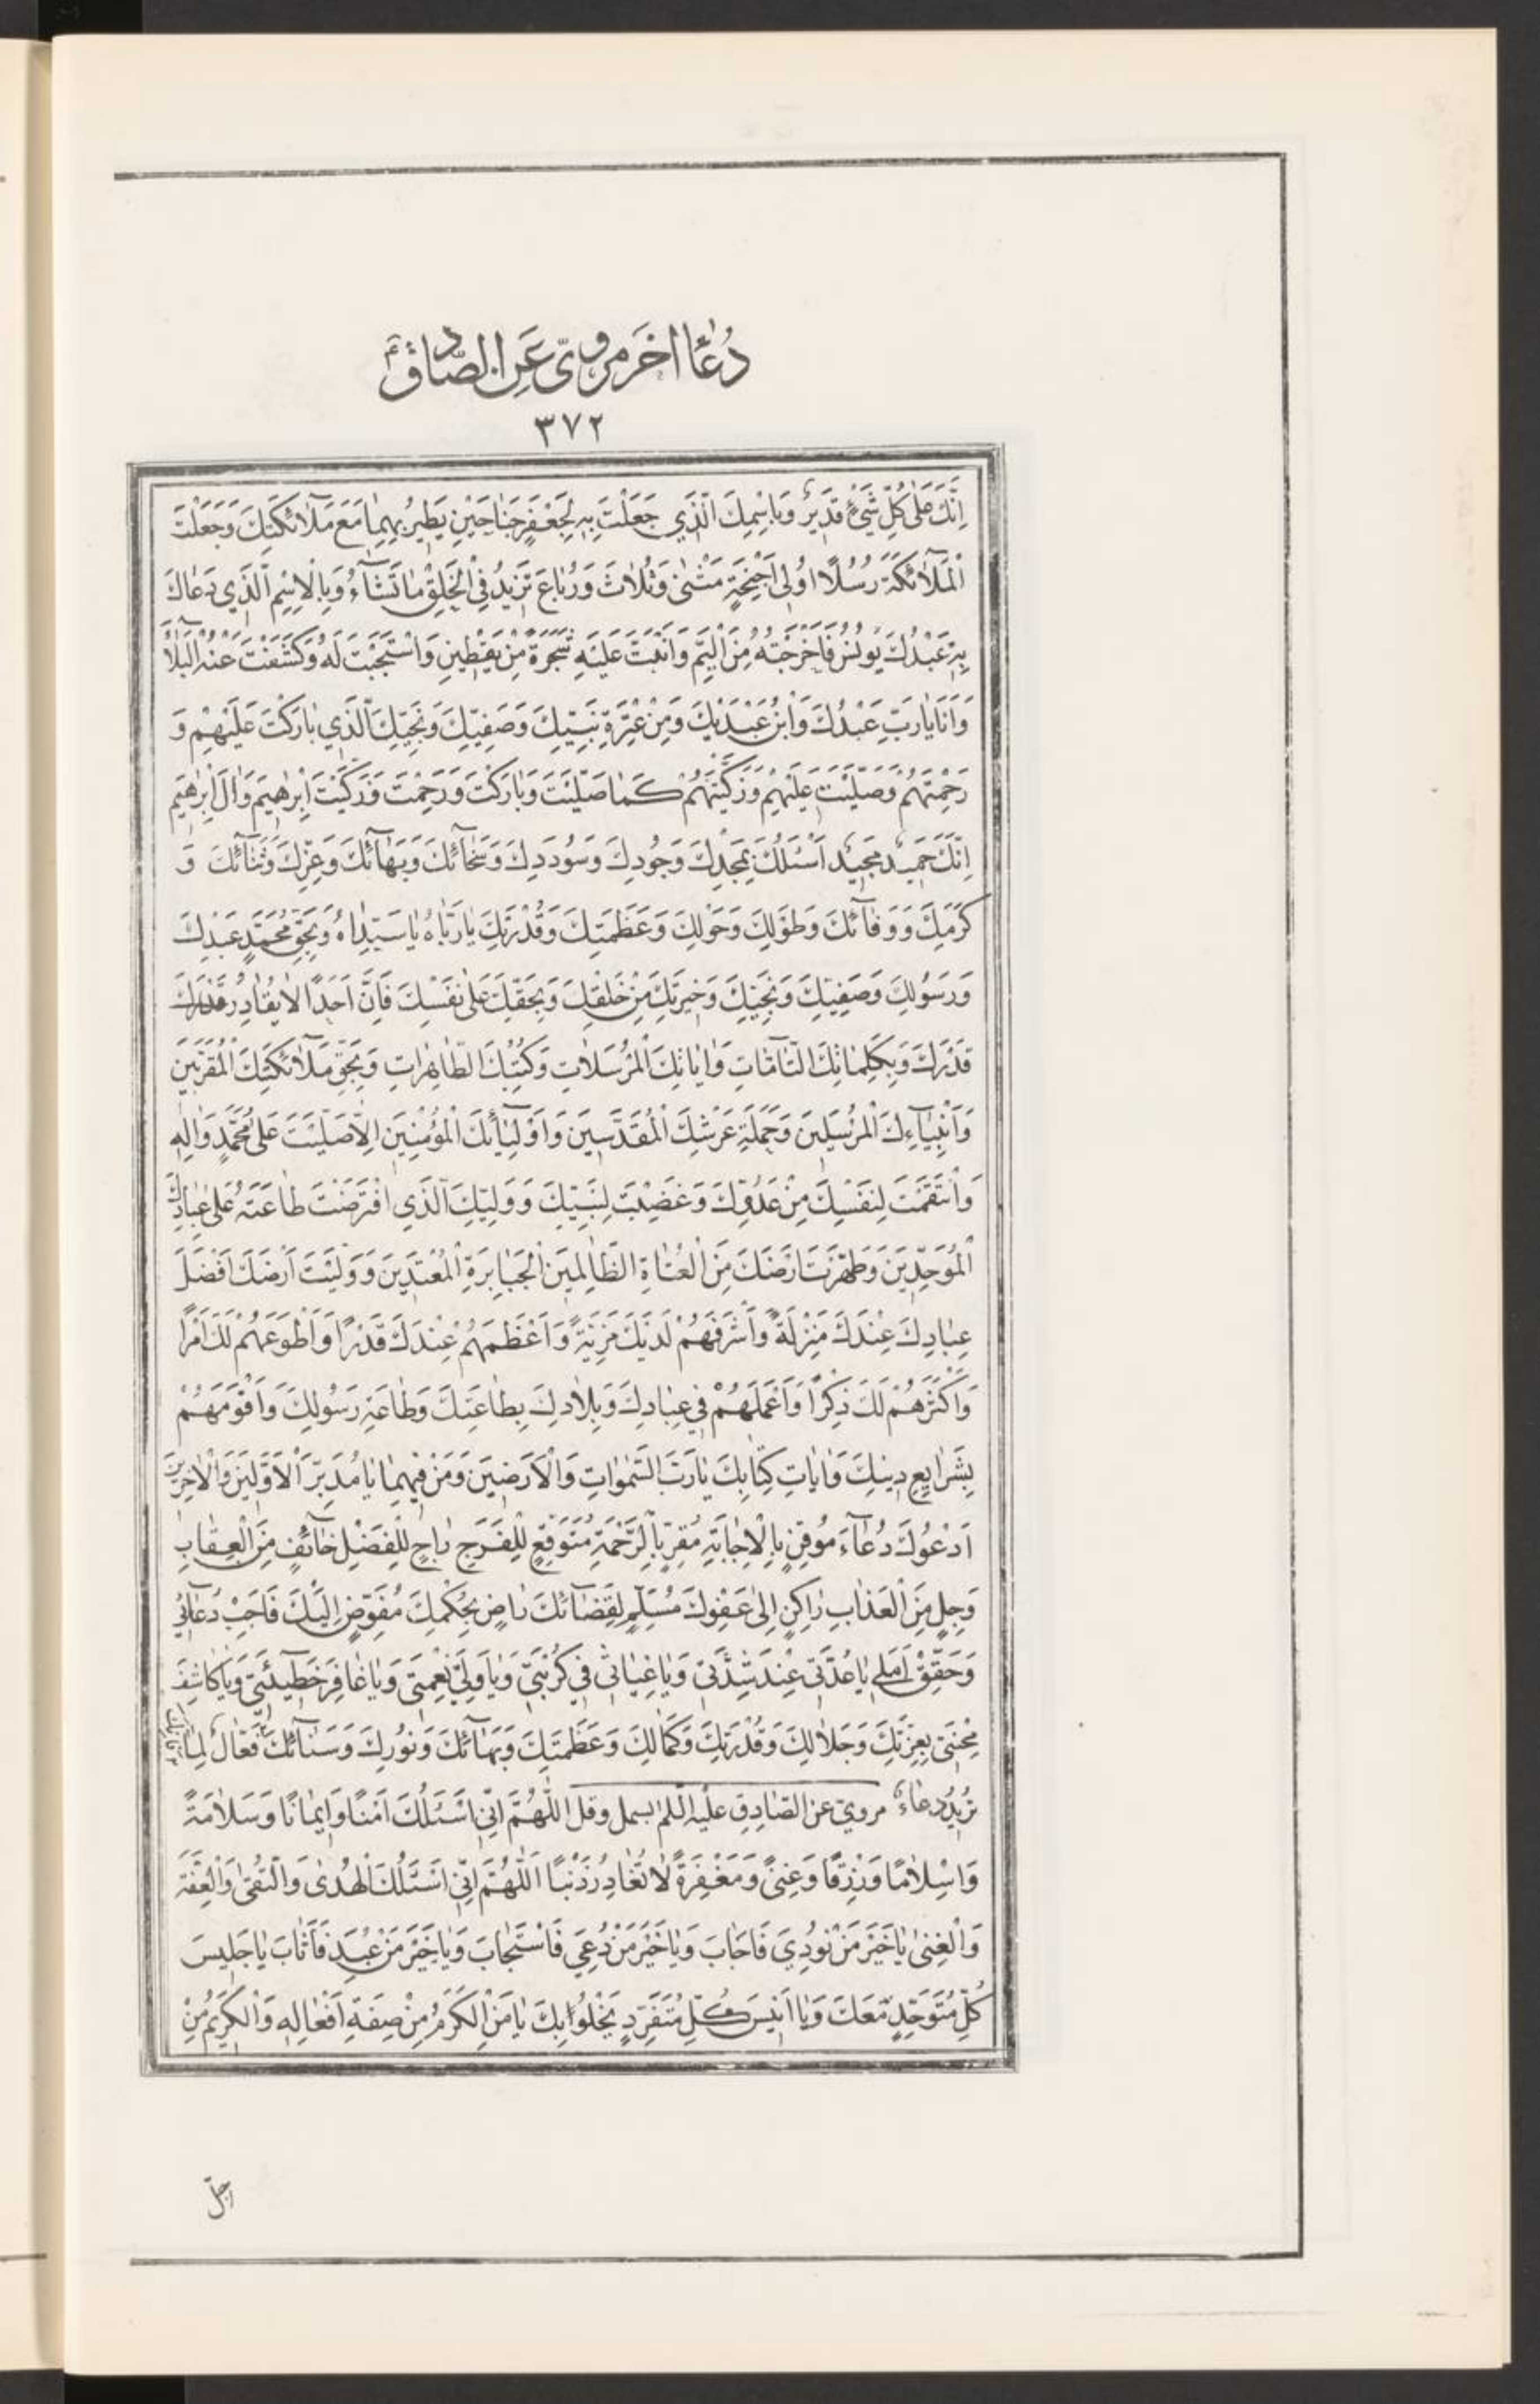 دُعَاءٌ اٰخَر مروىّ عَنِ الصّادِقؑ
٣٧٢
اِنَّكَ عَلٰى كُلِّ شَىْءٍ قَدِيرٌ وَبِاسْمِكَ الَّذِي جَعَلْتَ بِهِ لِجَعْفَرٍ جَنٰاحَيْنِ يَطِيرُ بِهِمٰا مَعَ مَلٰٓائِكَتِكَ وَجَعَلْتَ
الْمَلٰٓائِكَةَ رُسُلًا اُولِى اَجْنِحَةٍ مَثْنٰى وَثُلٰاثَ وَرُبٰاعَ تَزِيدُ فِي الْخَلْقِ مٰا تَشٰٓاءُ وَبِالْاِسْمِ الَّذِي دَعٰاكَ
بِهِ عَبْدُكَ يُونُسُ فَاَخْرَجْتَهُ مِنَ الْيَمِّ وَاَنْبَتَّ عَلَيْهِ شَجَرَةً مِنْ يَقْطِينٍ وَاسْتَجَبْتَ لَهُ وَكَشَفْتَ عَنْهُ الْبَلٰٓاءَ
وَاَنَا يٰا رَبِّ عَبْدُكَ وَابْنُ عَبْدَيْكَ وَمِنْ عِتْرَةِ نَبِيِّكَ وَصَفِيِّكَ وَنَجِيِّكَ الَّذِي بٰارَكْتَ عَلَيْهِمْ وَ
رَحِمْتَهُمْ وَصَلَّيْتَ عَلَيْهِمْ وَزَكَّيْتَهُمْ كَمٰا صَلَّيْتَ وَبٰارَكْتَ وَرَحِمْتَ وَزَكَّيْتَ اِبْرٰهِيمَ وَاٰلَ اِبْرٰهِيمَ
اِنَّكَ حَمِيدٌ مَجِيدٌ اَسْئَلُكَ بِمَجْدِكَ وَجُودِكَ وَسُودَدِكَ وَسَخٰٓائِكَ وَبَهٰٓائِكَ وَعِزِّكَ وَثَنٰٓائِكَ وَ
كَرَمِكَ وَوَفٰٓائِكَ وَطَوْلِكَ وَحَوْلِكَ وَعَظَمَتِكَ وَقُدْرَتِكَ يٰا رَبّٰاهُ يٰا سَيِّدٰاهُ وَبِحَقِّ مُحَمَّدٍ عَبْدِكَ
وَرَسُولِكَ وَصَفِيِّكَ وَنَجِيِّكَ وَخِيَرَتِكَ مِنْ خَلْقِكَ وَبِحَقِّكَ عَلٰى نَفْسِكَ فَاِنَّ اَحَدًا لٰا يُقٰادِرُ قَدْرَكَ
قَدْرَكَ وَبِكَلِمٰاتِكَ التّٰامّٰاتِ وَاٰيٰاتِكَ الْمُرْسَلٰاتِ وَكُتُبِكَ الطّٰاهِرٰاتِ وَبِحَقِّ مَلٰٓائِكَتِكَ الْمُقَرَّبِينَ
وَاَنْبِيٰٓاءِكَ الْمُرْسَلِينَ وَحَمَلَةِ عَرْشِكَ الْمُقَدَّسِينَ وَاَوْلِيٰٓائِكَ الْمُؤْمِنِينَ اِلّٰا صَلَّيْتَ عَلٰى مُحَمَّدٍ وَاٰلِهِ
وَانْتَقَمْتَ لِنَفْسِكَ مِنْ عَدُوِّكَ وَغَضِبْتَ لِنَبِيِّكَ وَوَلِيِّكَ الَّذِي افْتَرَضْتَ طٰاعَتَهُ عَلٰى عِبٰادِكَ
الْمُوَحِّدِينَ وَطَهَّرْتَ اَرْضَكَ مِنَ الْعُتٰاةِ الظّٰالِمِينَ الْجَبٰابِرَةِ الْمُعْتَدِينَ وَوَلَّيْتَ اَرْضَكَ اَفْضَلَ
عِبٰادِكَ عِنْدَكَ مَنْزِلَةً وَاَشْرَفَهُمْ لَدَيْكَ مَزِيَّةً وَاَعْظَمَهُمْ عِنْدَكَ قَدْرًا وَاَطْوَعَهُمْ لَكَ اَمْرًا
وَاَكْثَرَهُمْ لَكَ ذِكْرًا وَاَعْمَلَهُمْ فِي عِبٰادِكَ وَبِلٰادِكَ بِطٰاعَتِكَ وَطٰاعَةِ رَسُولِكَ وَاَقْوَمَهُمْ
بِشَرٰايِعِ دِينِكَ وَاٰيٰاتِ كِتٰابِكَ يٰا رَبَّ السَّمٰوٰاتِ وَالْاَرَضِينَ وَمَنْ فِيهِمٰا يٰا مُدَبِّرَ الْاَوَّلِينَ وَالْاٰخِرِينَ
اَدْعُوكَ دُعٰٓاءَ مُوقِنٍ بِالْاِجٰابَةِ مُقِرٍّ بِالرَّحْمَةِ مُتَوَقِّعٍ لِلْفَرَجِ رٰاجٍ لِلْفَضْلِ خٰٓائِفٍ مِنَ الْعِقٰابِ
وَجِلٍ مِنَ الْعَذٰابِ رٰاكِنٍ اِلٰى عَفْوِكَ مُسَلِّمٍ لِقَضٰٓائِكَ رٰاضٍ بِحُكْمِكَ مُفَوِّضٍ اِلَيْكَ فَاَجِبْ دُعٰٓائِي
وَحَقِّقْ اَمَلِي يٰا عُدَّتِي عِنْدَ شِدَّتِي وَيٰا غِيٰاثِي فِي كُرْبَتِي وَيٰا وَلِيَّ نِعْمَتِي وَيٰا غٰافِرَ خَطِيٓئَتِي وَيٰا كٰاشِفَ
مِحْنَتِي بِعِزَّتِكَ وَجَلٰالِكَ وَقُدْرَتِكَ وَكَمٰالِكَ وَعَظَمَتِكَ وَبَهٰٓائِكَ وَنُورِكَ وَسَنٰٓائِكَ فَعّٰالٌ لِمٰا
تُرِيدُ دعَاءٌ مروىّ عن الصّادِقِ عليه السّلم بسمل وقل اللّٰهُمَّ اِنِّي اَسْئَلُكَ اَمْنًا وَاِيمٰانًا وَسَلٰامَةً
وَاِسْلٰامًا وَرِزْقًا وَغِنىً وَمَغْفِرَةً لٰا تُغٰادِرُ ذَنْبًا اَللّٰهُمَّ اِنِّي اَسْئَلُكَ الْهُدٰى وَالتُّقٰى وَالْعِفَّةَ
وَالْغِنٰى يٰا خَيْرَ مَنْ نُودِيَ فَاَجٰابَ وَيٰا خَيْرَ مَنْ دُعِيَ فَاسْتَجٰابَ وَيٰا خَيْرَ مَنْ عُبِدَ فَاَثٰابَ يٰا جَلِيسَ
كُلِّ مُتَوَحِّدٍ مَعَكَ وَيٰا اَنِيسَ كُلِّ مُتَفَرِّدٍ يَخْلُوا بِكَ يٰا مَنِ الْكَرَمُ مِنْ صِفَةِ اَفْعٰالِهِ وَالْكَرِيمُ مِنْ
اجلّ